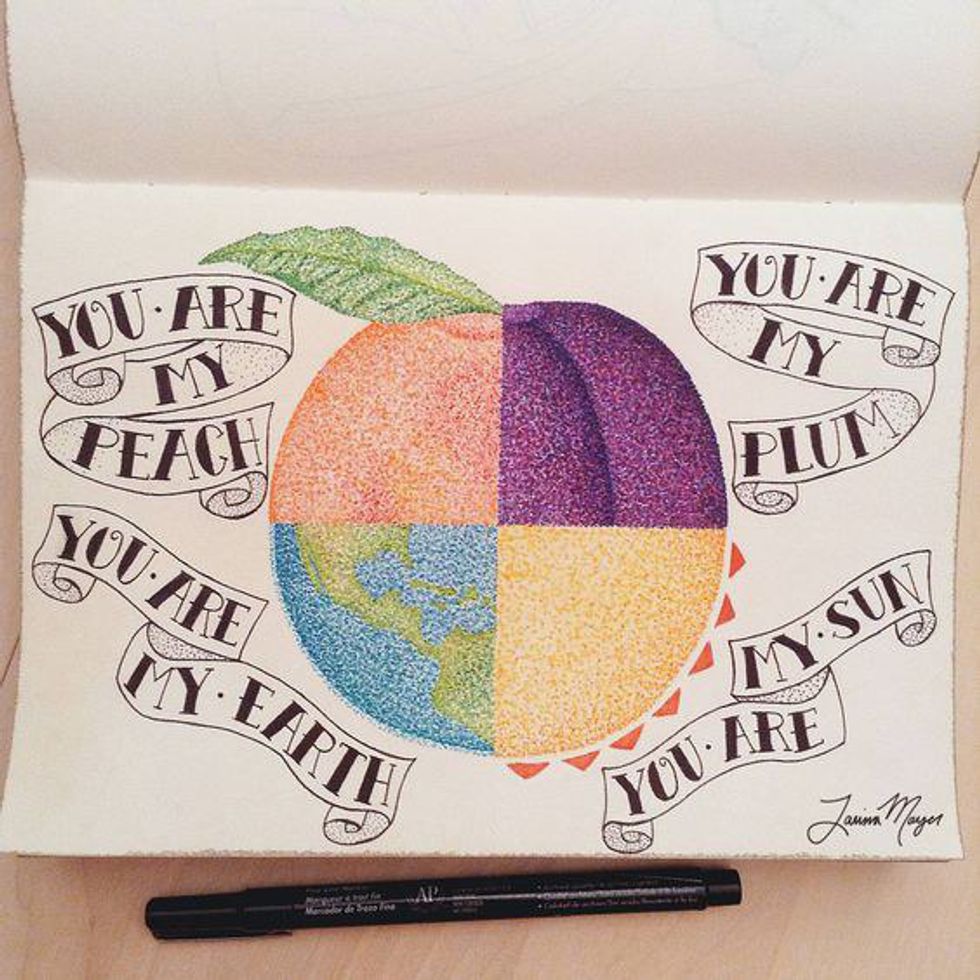 YOU·ARE
MY
PEACH
YOU·ARE
MY
PLUM
YOU·ARE
MY·EARTH
YOU·ARE
MY·SUN
Larissa Mayer
Marqueur à trait Fin
Marcador de Trazo Fino
AP